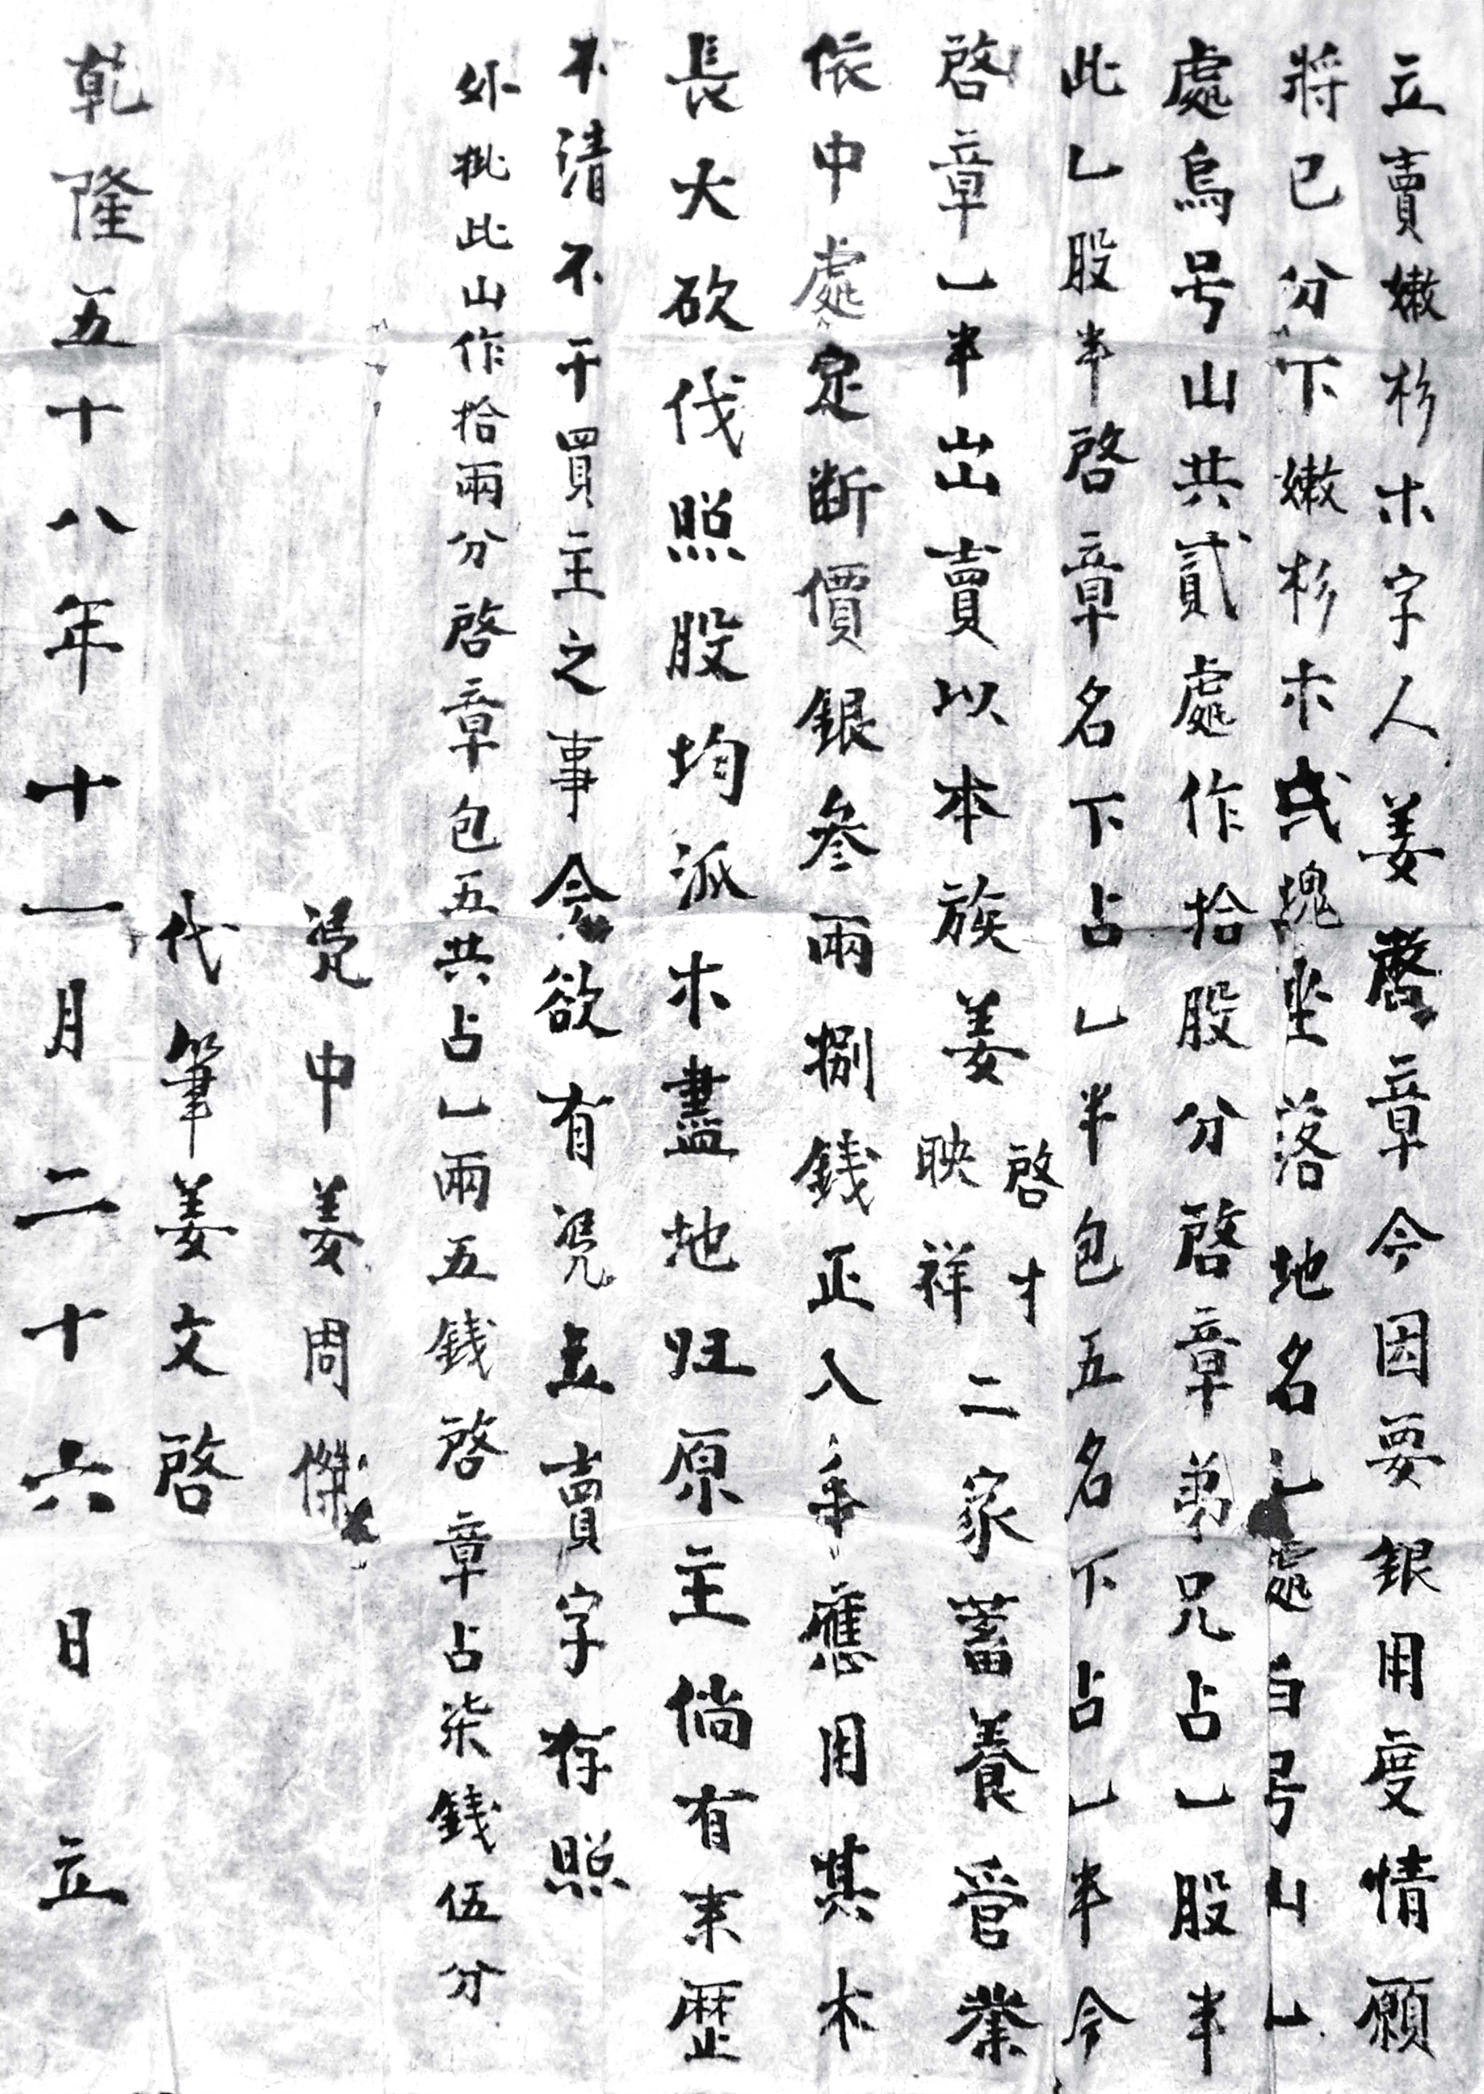 立賣嫩杉木字人姜啓章今因要銀用度情願
將已分下嫩杉木弍塊坐落地名乚處白号山乚
處烏号山共貳處作拾股分啓章弟兄占乚股半
此乚股半啓章名下占乚半包五名下占乚半今
啓章乚半出賣以本族姜啓才映祥二家蓄養管業
依中處定断價銀叄兩捌錢正入手應用其木
長大砍伐照股均派木盡地归原主倘有来歷
不清不干買主之事今欲有凴立賣字存照
外批此山作拾兩分啓章包五共占乚兩五錢啓章占柒錢伍分
凴中姜周傑
代筆姜文啓
乾隆五十八年十一月二十六日立